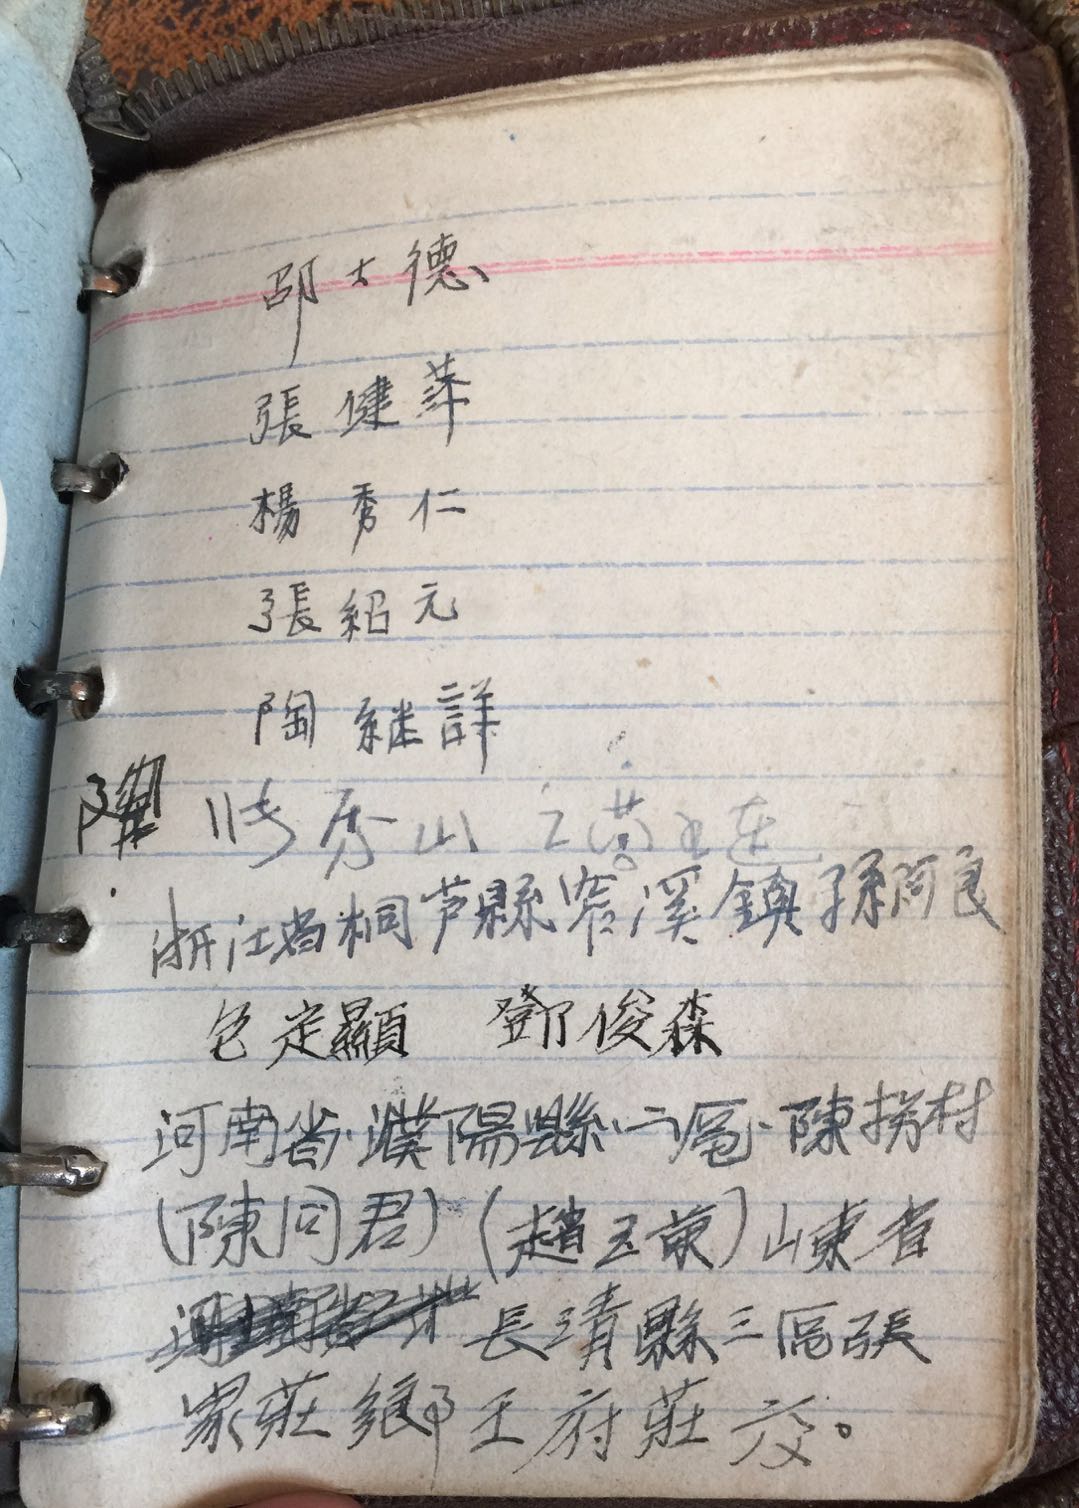 邵士德
張健華
楊秀仁
張紹元
陶継詳
秀山
浙江省桐芦縣窄溪鎮孫阿良
包定顯 鄧俊森
河南省·濮陽縣·二區·陳拐村
(陳同君) (趙玉蘭) 山東省
長清縣三區張
家莊鄉王府莊交。